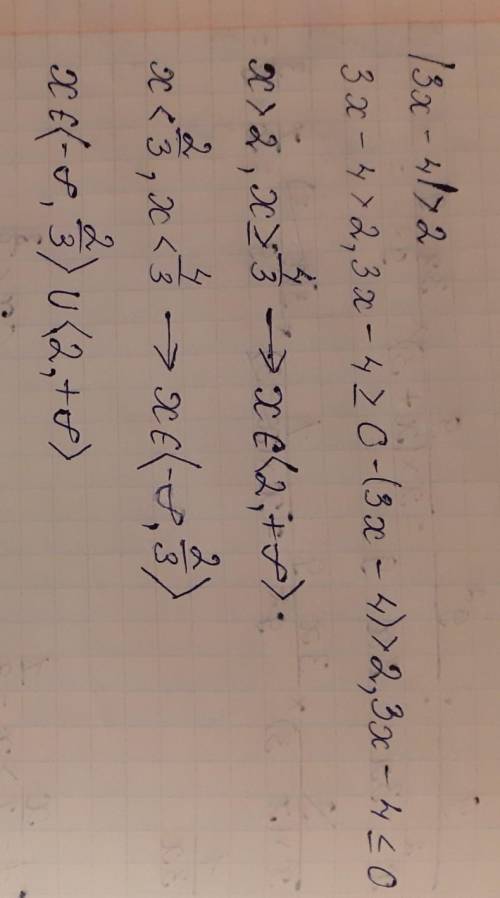 |3x - 4| > 2
3x - 4 > 2, 3x - 4 ≥ 0 -(3x - 4) > 2, 3x - 4 ≤ 0
x > 2, x ≥ 4/3 → x ∈ ⟨2, +∞⟩.
x < 2/3, x < 4/3 → x ∈ ⟨-∞, 2/3⟩
x ∈ ⟨-∞, 2/3⟩ ∪ ⟨2, +∞⟩